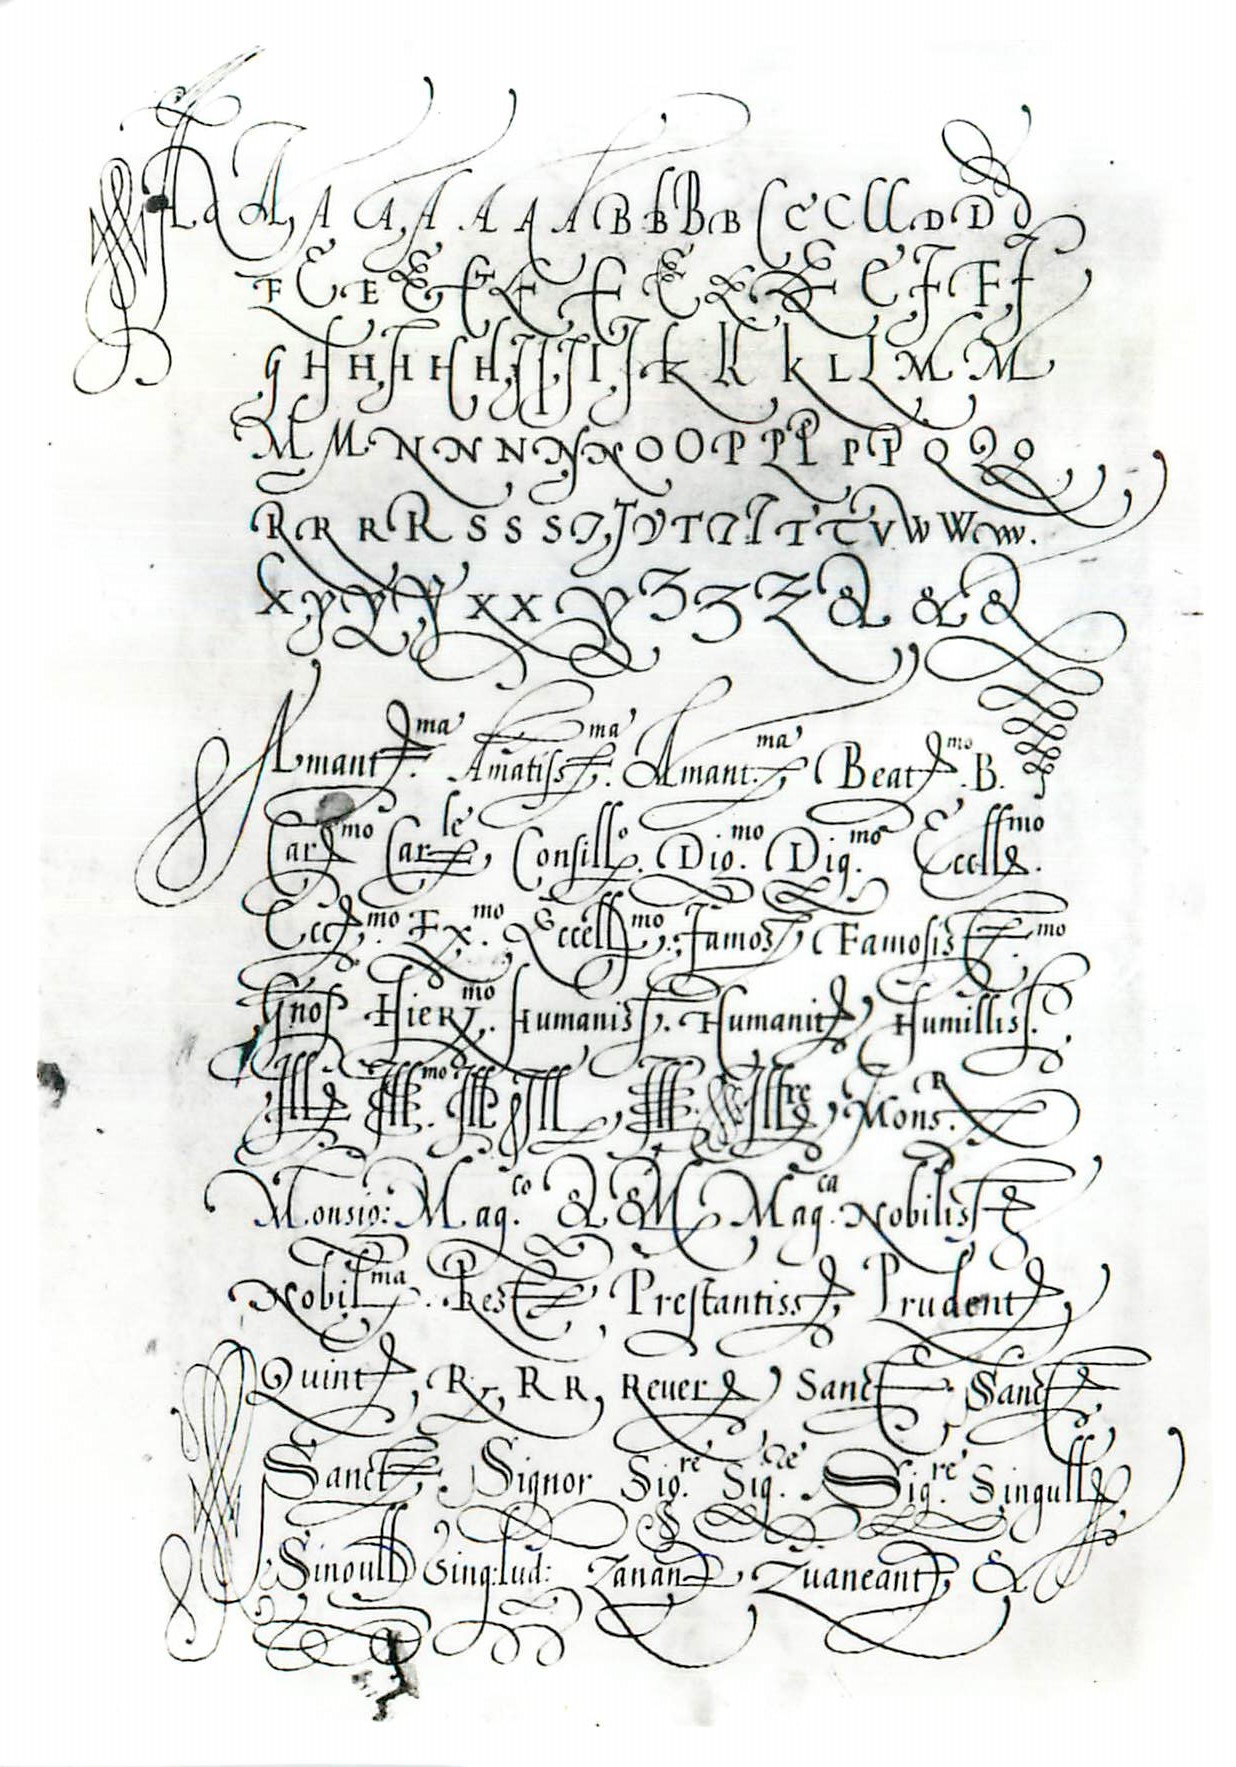 A a A A A A A A A B B B B C C C C C D D D
F E E E E E E E E E E F F F
G H H H H H I I I I I K K K L L M M
M M N N N N N O O P P P P P Q Q Q
R R R R S S S T T V T T T T T V W W W.
X Y Y Y X X Y Z Z Z & & &
Amant. ma Amatiss. ma Amant. ma Beat. mo B.
Car. mo Car. le Consill. o Dig. mo Dig. mo Eccell. mo
Ecc. mo Ex. mo Eccell. mo Famos Famosiss. mo
Gnos Hier. mo Humaniss. Humanit Humilliss.
Ill Ill. mo Ill Ill Ill. Illre, Mons. R
Monsig: Mag. co & M Mag. ca Nobiliss
Nobil. ma Prestantiss, Prudent,
Quint, R, R R, Reuer Sanct Sanct
Sanct Signor Sig. re Sig. re Sig. re Singull
Singull Sing: lud: Zanan, Zuaneant, &